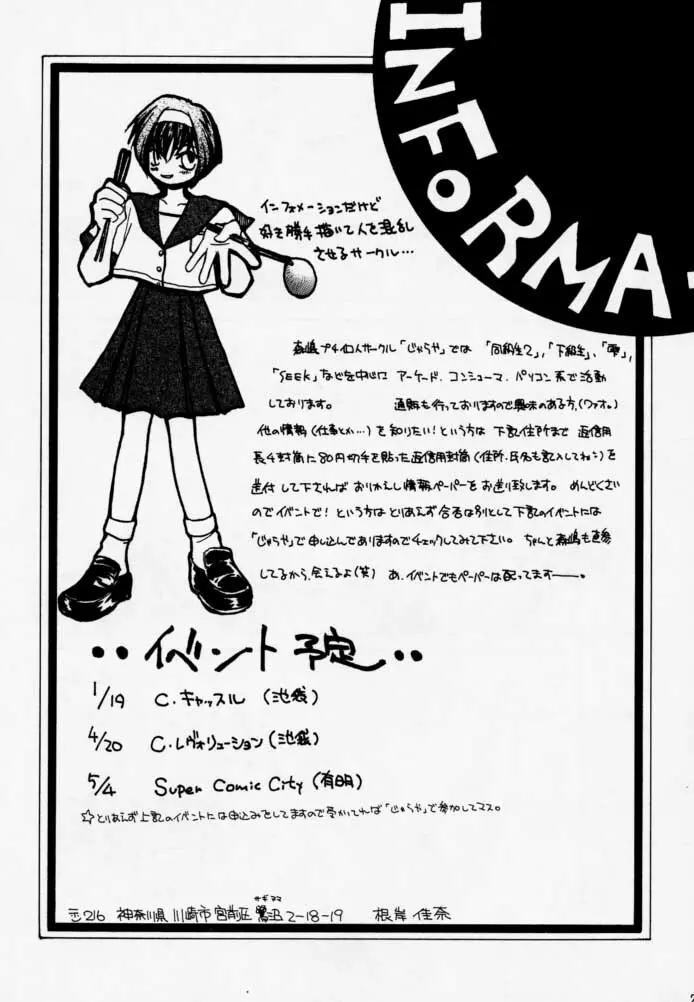 INFORMA-
インフォメーションだけど
好き勝手描いて人を混乱
させるサークル…
森嶋プチイロ人サークル「じゃらや」では 「同級生2」,「下級生」、「雫」,
「SEEK」などを中心に アーケード. コンシューマ. パソコン系で活動
しております。 通販も行っておりますので興味のある方,(ワァオ。)
他の情報(仕事とか…)を知りたい!という方は 下記住所まで 返信用
長4封筒に80円切手を貼った返信用封筒(住所.氏名も記入してね)を
送付して下されば おりかえし情報ペーパーをお送り致します。 めんどくさい
のでイベントで! という方は とりあえず合否は別として下記のイベントには
「じゃらや」で申し込んでありますのでチェックしてみて下さい。ちゃんと森嶋も直参
してるから.会えるよ(笑) あ.イベントでもペーパーは配ってます――。
・・イベント予定・・
1/19 C.キャッスル(池袋)
4/20 C.レヴォリューション(池袋)
5/4 Super Comic City(有明)
☆とりあえず上記のイベントには申込みをしてますので受かってれば「じゃらや」で参加してマス。
サギヌマ
〒216 神奈川県川崎市宮前区鷺沼2-18-19 根岸佳奈